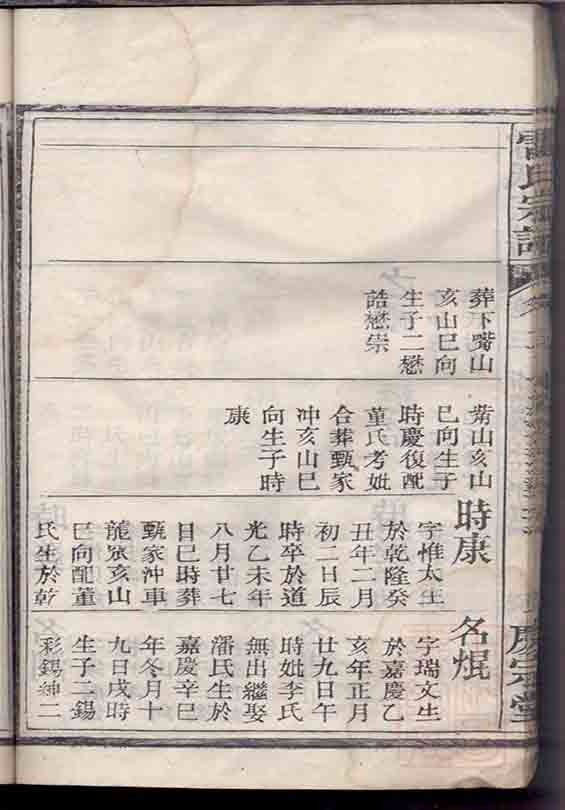 氏宗譜
慶宗堂
葬下嘴山
亥山巳向
生子二懋
誥懋崇
嘴山亥山
巳向生子
時慶復配
董氏考妣
合葬甄家
冲亥山巳
向生子時
康
時康
字惟太生
於乾隆癸
丑年二月
初二日辰
時卒於道
光乙未年
八月廿七
日巳時葬
甄家沖車
龍亥山
巳向配董
氏生於乾
名焜
字瑞文生
於嘉慶乙
亥年正月
廿九日午
時妣李氏
無出繼娶
潘氏生於
嘉慶辛巳
年冬月十
九日戌時
生子二錫
彩錫紳二